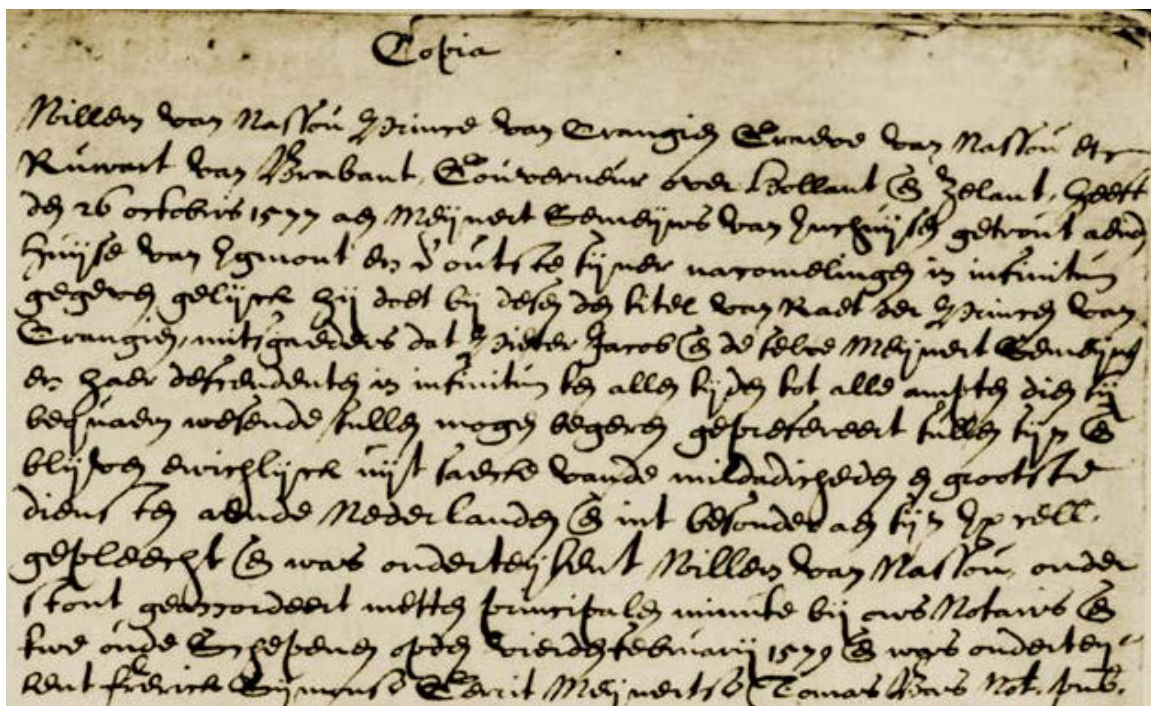 Copia
Willem van Nassou Prince van Orangien Graeve van Nassou etc
Ruwart van Brabant, Gouverneur over Hollant en Zelant, heeft
den 26 octobris 1577 aen Meijnert Semeijns van Inchuijsen getrout aenden
huijse van Egmont en d'outste sijner nacomelingen in infinitum
gegeven gelijck hij doet bij desen den titel van Raet der Princen van
Orangien, mitsgaeders dat Pieter Jacob en de selve Meijnert Semeijns
en haer descendenten in infinitum ten allen tijden tot alle ampten dien sij
bequaem wesende sullen mogen begeren geprefereert sullen sijn en
blijven ewichlijck uijt saecke vande mildadicheden en grootste
diensten aende Nederlanden en int besonder aen sijn Excell.
gepleecht en was onderteijkent Willem van Nassou, onder
stont geaccordeert metten principalen minute bij ons Notaris en
twe oude Schepenen opden vierden februarij 1579 en was onderteij-
kent frerick Sijmonsz Gerrit Meijnertsz Tomas Not. pub.